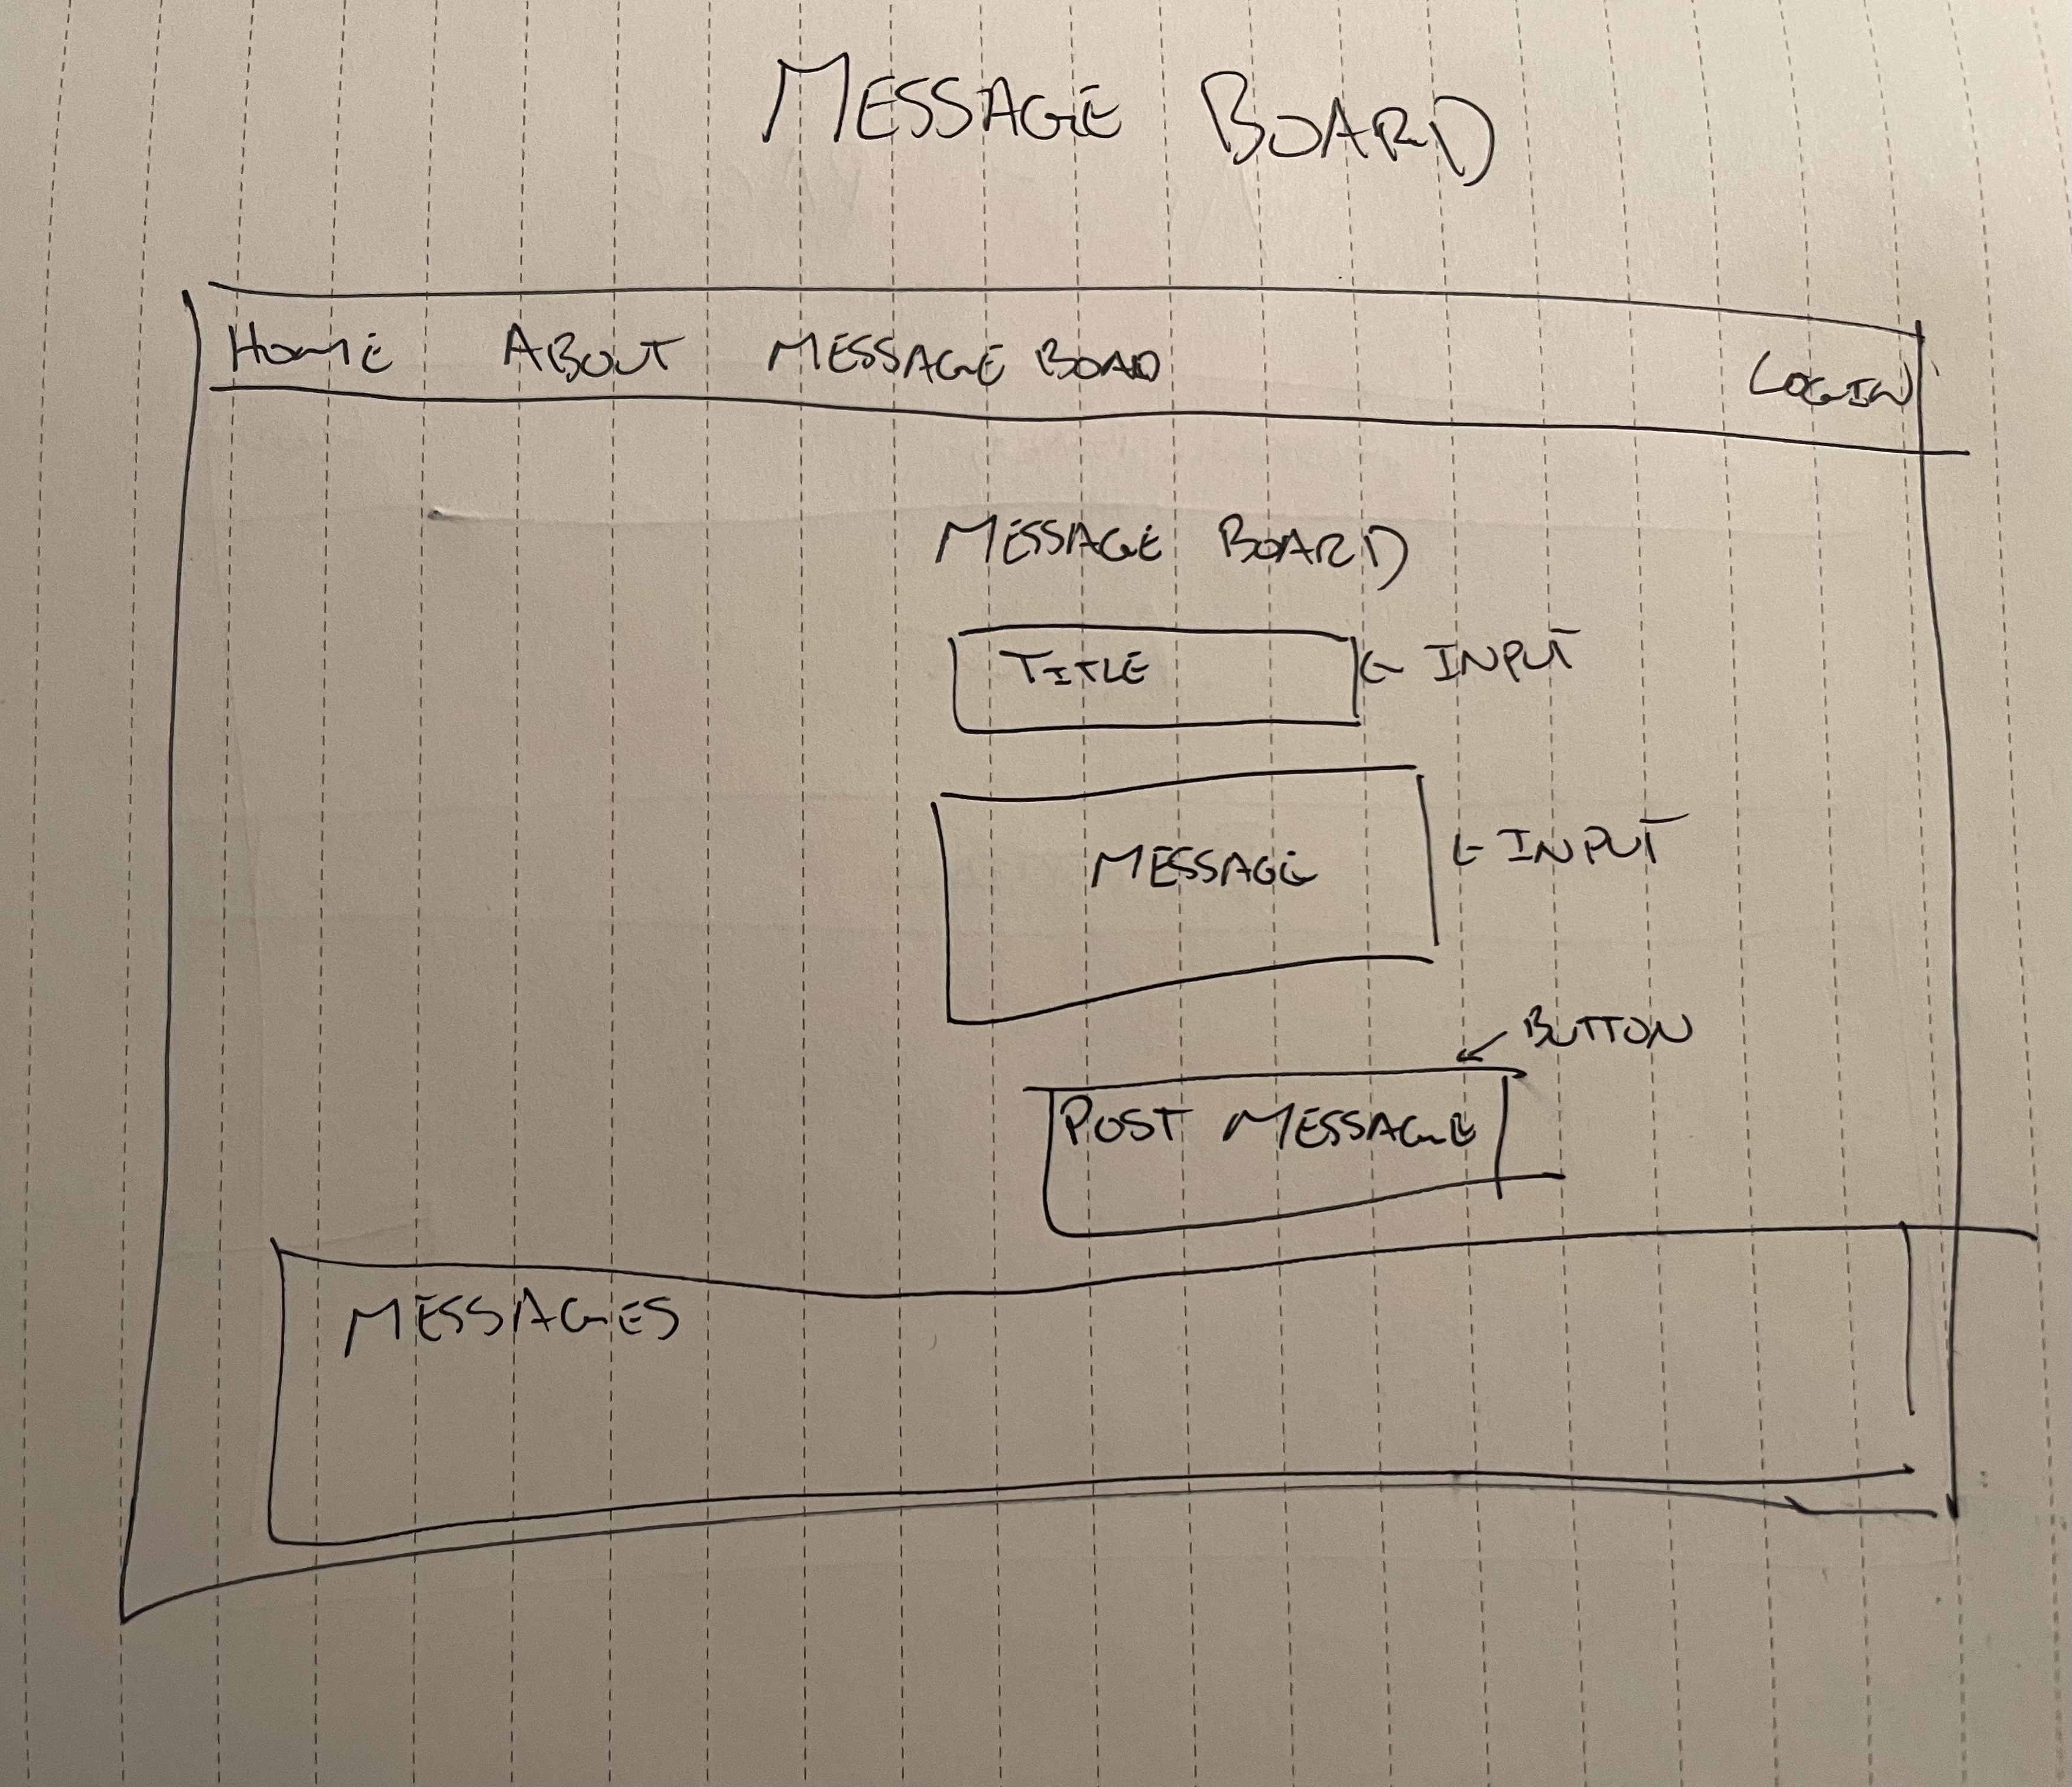 MESSAGE BOARD
HOME ABOUT MESSAGE BOAD LOGIN
MESSAGE BOARD
TITLE ← INPUT
MESSAGE ← INPUT
BUTTON
POST MESSAGE
MESSAGES